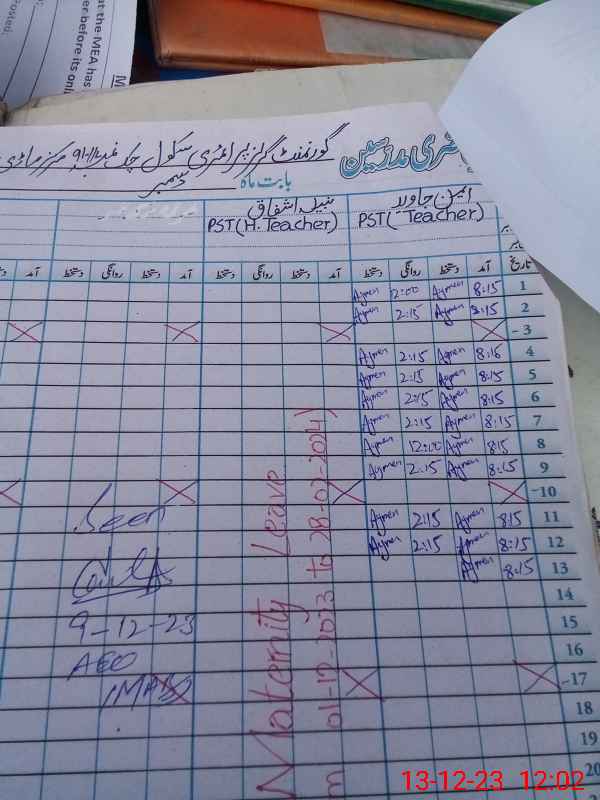 at the MEA has
er before its onl
Posted:
گورنمنٹ گرلز پرائمری سکول چک نمبر 91-11 مرکز ماڑی
ضری مدرسین
بابت ماہ دسمبر
نبیلہ اشفاق
PST(H. Teacher)
ایمن جاوید
PST( Teacher)
آمد دستخط روانگی دستخط آمد دستخط روانگی دستخط آمد دستخط روانگی دستخط تاریخ
1 8:15 Aymen 12:00 Aymen
2 8:15 Aymen 2:15 Aymen
3
4 8:15 Aymen 2:15 Aymen
5 8:15 Aymen 2:15 Aymen
6 8:15 Aymen 2:15 Aymen
7 8:15 Aymen 2:15 Aymen
8 8:15 Aymen 12:00 Aymen
9 8:15 Aymen 2:15 Aymen
10
11 8:15 Aymen 2:15 Aymen
12 8:15 Aymen 2:15 Aymen
13 8:15 Aymen
14
15
16
17
18
19
20
Maternity Leave
m 01-12-2023 to 28-02-2024)
Seen
9-12-23
AEO
13-12-23 12:02